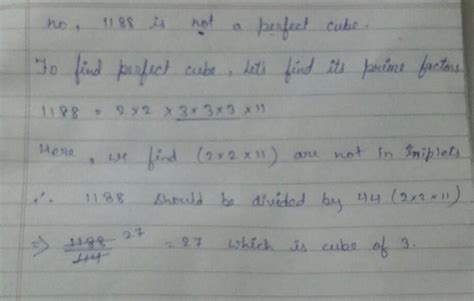 no, 1188 is not a perfect cube.
To find perfect cube, lets find its prime factors
1188 = 2×2 × 3×3×3 ×11
Here, we find (2×2×11) are not in triplets
∴ 1188 should be divided by 44 (2×2×11)
⇒ 1188/44 27 = 27 which is cube of 3.